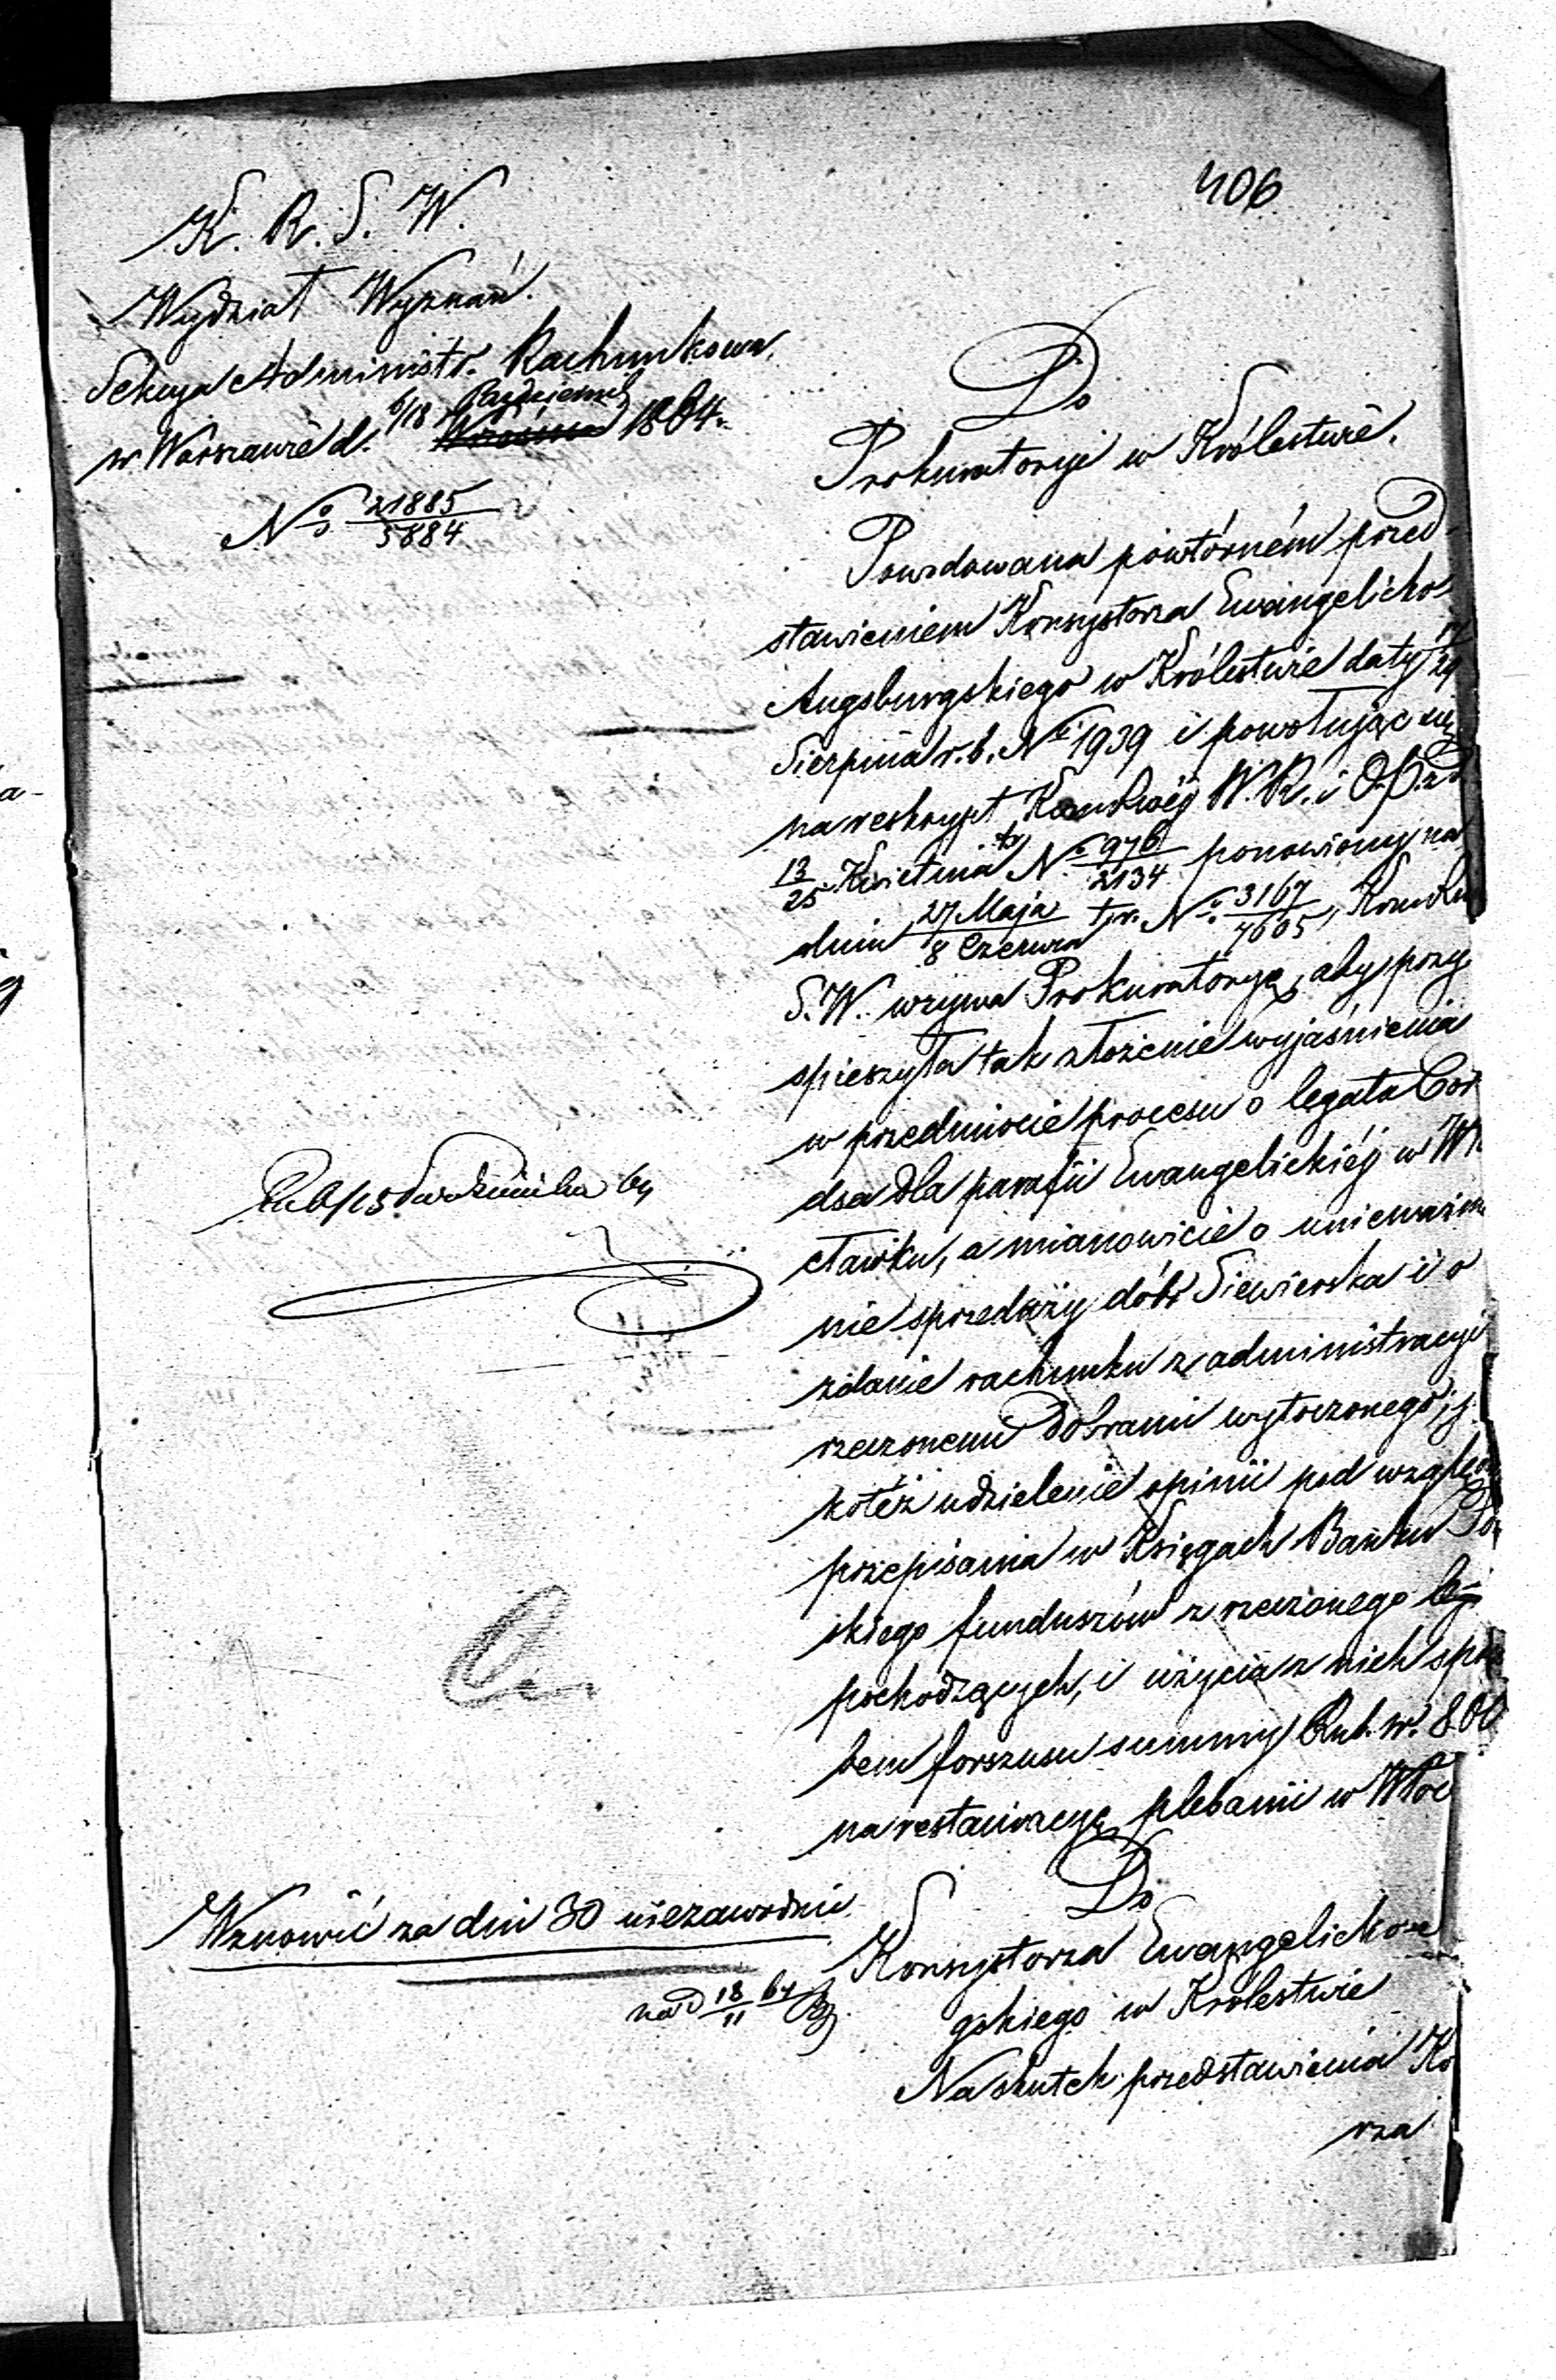 406
K. R. S. W.
Wydział Wyznań.
Sekcya Administr. Rachunkowa.
w Warszawie d. 6/18 Października 1864.
No 21885/5884
Do
Prokuratoryi w Królestwie.
Powodowana powtórném przed-
stawieniem Konsystorza Ewangelicko
Augsburgskiego w Królestwie daty 17/29
Sierpnia r. b. No 1939 i powołując się
na reskrypt Kom. Rząej W. R. i O. P. z d.
13/25 Kwietnia tr No 976/2134 ponowiony na
dniu 27 Maja/8 Czerwca t. r. No 3167/7605, Kom. Rz
S. W. wzywa Prokuratoryę, aby przy
spieszyła tak złożenie wyjaśnienia
w przedmiocie procesu o legata Cor
dsa dla parafii Ewangelickiéj w Wło
cławku, a mianowicie o unieważnie
nie sprzedaży dóbr Siewierska i o
zdanie rachunku z administracyi
rzeczonemi Dobrami wytoczonego, j
kotéż udzielenie opinii pod względ
przepisania w Księgach Banku Po
skiego funduszów z rzeczonego leg
pochodzących, i użycia z nich spo
bem forszusu summy Rub. sr. 800
na restauracyę plebanii w Włoc
Wznowić za dni 30 niezawodnie
na d 18/11 64
Do
Konsystorza Ewangelicko
gskiego w Królestwie
Na skutek przedstawienia Ko
rza